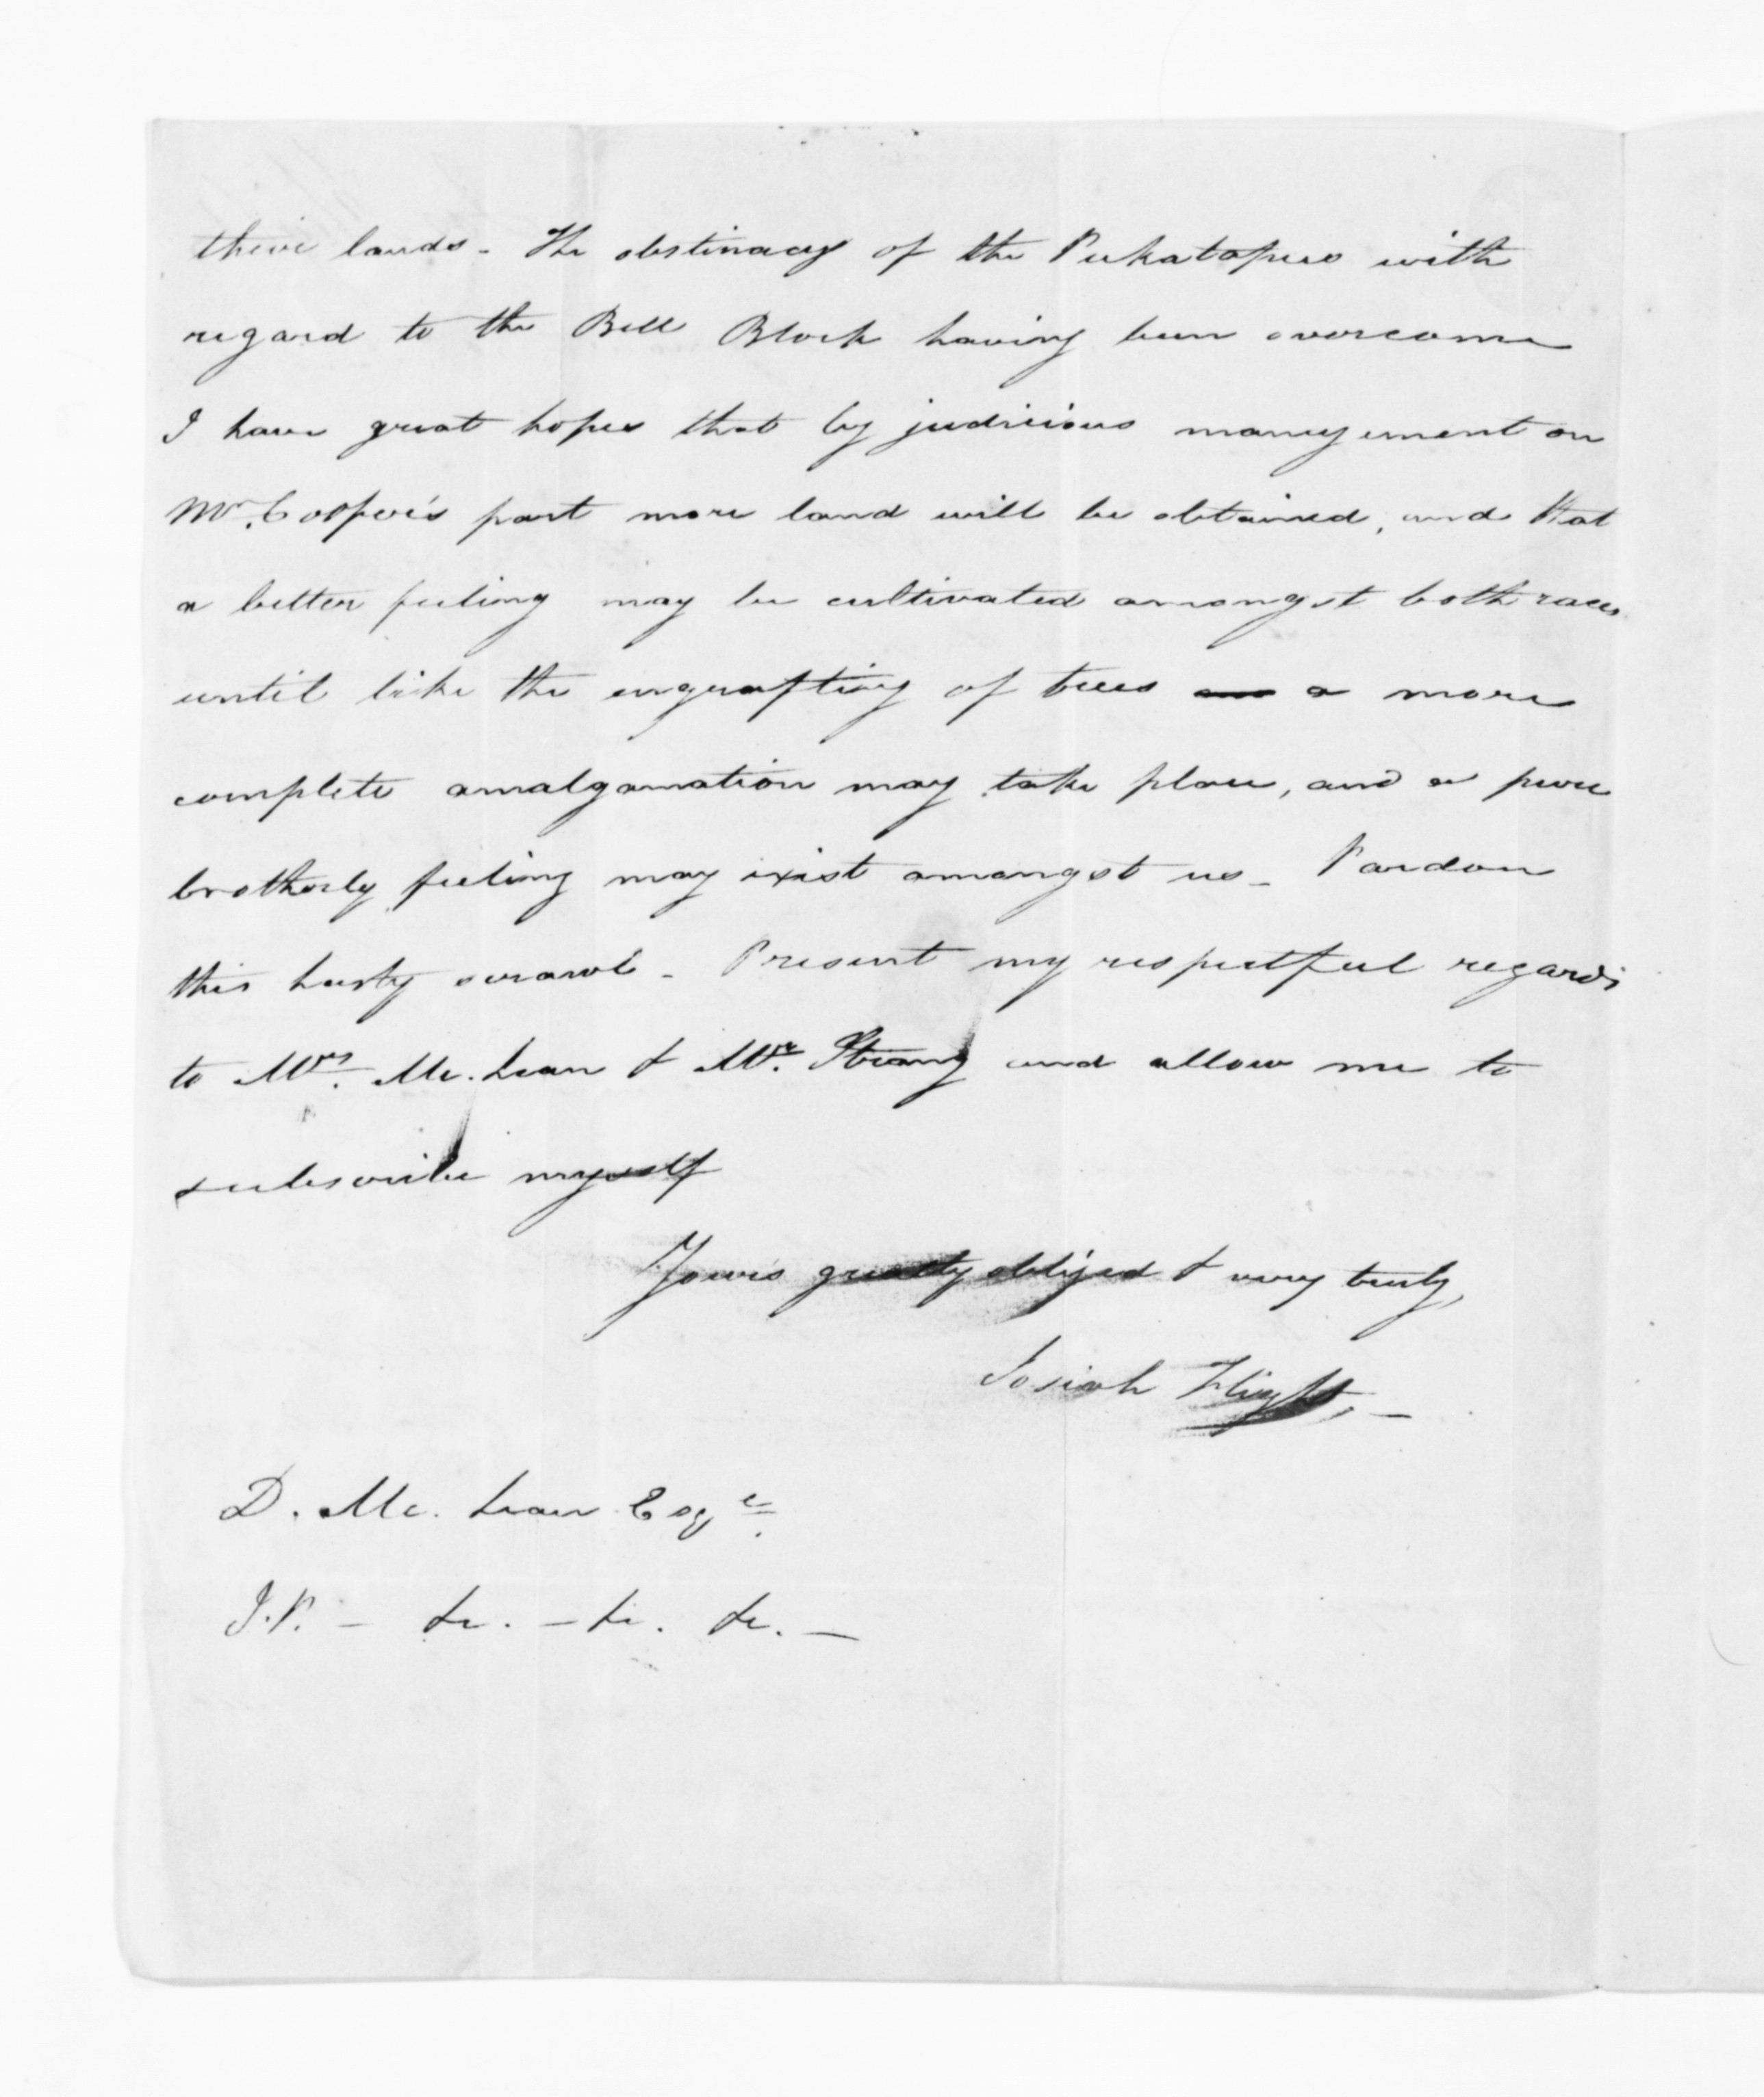 their lands - The obstinacy of the Pukatapus with
regard to the Bell Block having been overcome
I have great hopes that by judicious management on
Mr. Cooper's part more land will be obtained, and that
a better feeling may be cultivated amongst both races
until like the engrafting of trees a more
complete amalgamation may take place, and a pure
brotherly feeling may exist amongst us - Pardon
this hasty scrawl - Present my respectful regards
to Mrs. Mc.Lean & Mr. Strang and allow me to
subscribe myself
Yours greatly obliged & very truly,
Josiah Flight, -
D. Mc. Lean Esqe.
J.P. - &c. - &c. &c. -